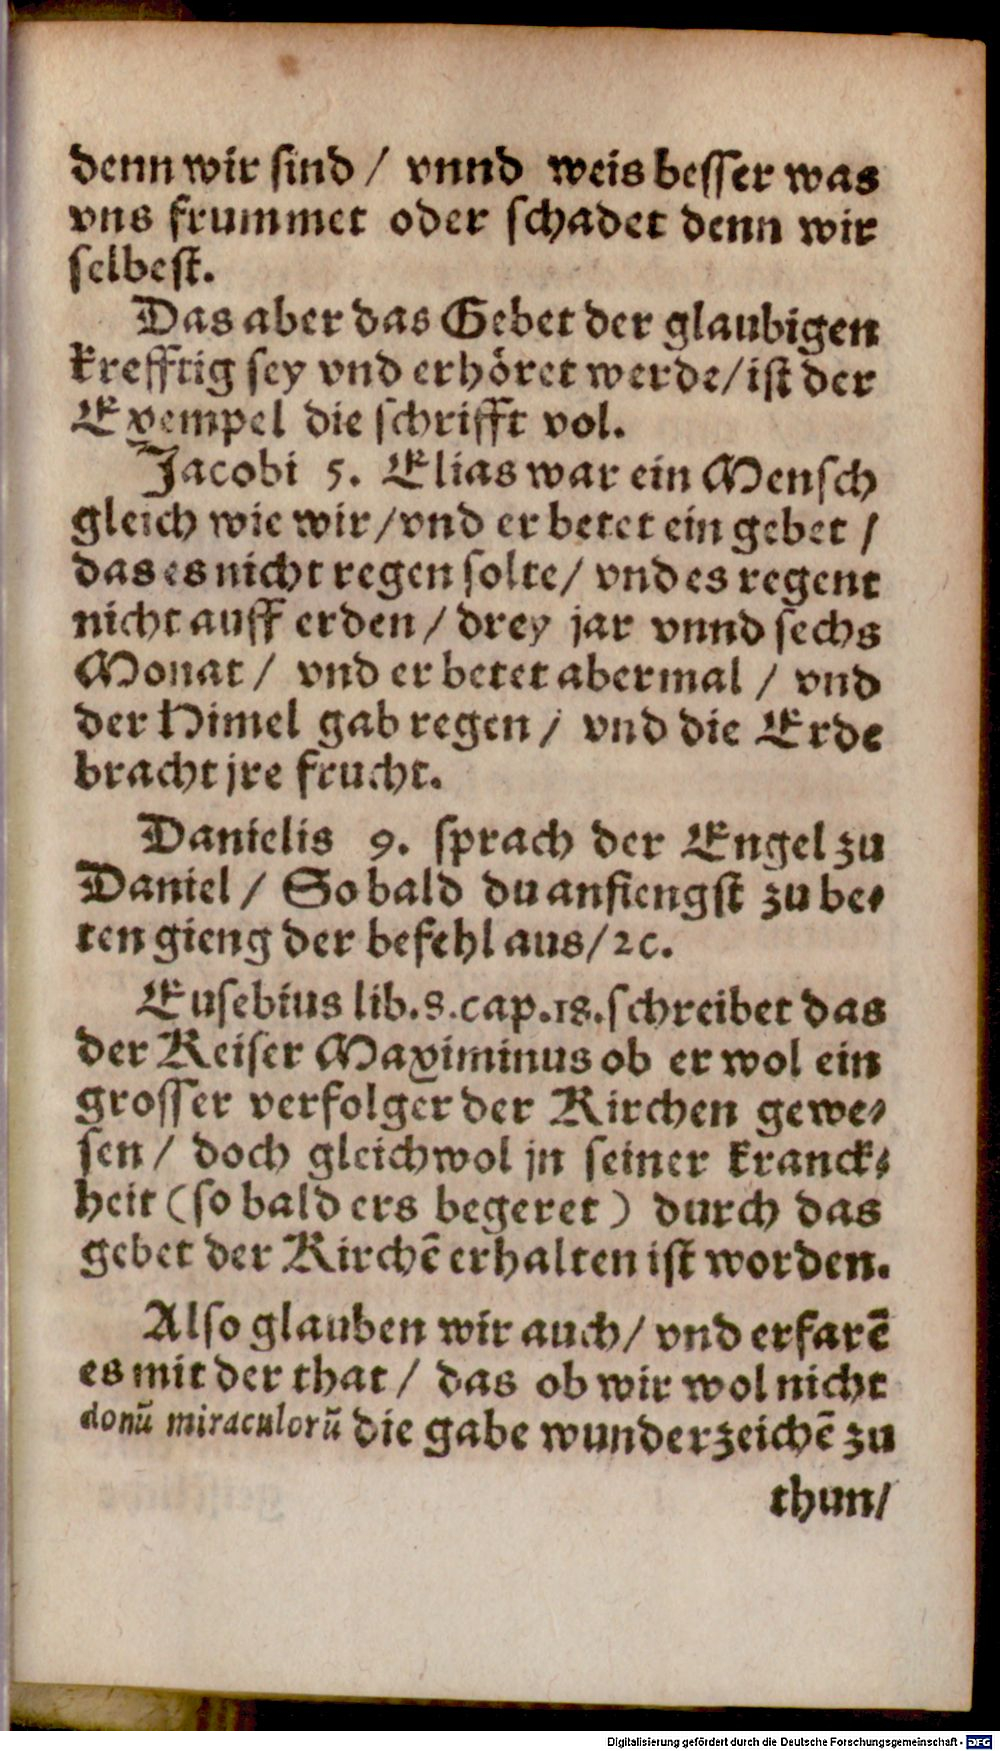 denn wir sind / vnnd weis besser was
vns frummet oder schadet denn wir
selbest.
Das aber das Gebet der glaubigen
krefftig sey vnd erhöret werde / ist der
Exempel die schrifft vol.
Jacobi 5. Elias war ein Mensch
gleich wie wir / vnd er betet ein gebet /
das es nicht regen solte / vnd es regent
nicht auff erden / drey jar vnnd sechs
Monat / vnd er betet abermal / vnd
der Himel gab regen / vnd die Erde
bracht jre frucht.
Danielis 9. sprach der Engel zu
Daniel / So bald du anfiengst zu be-
ten gieng der befehl aus / ꝛc.
Eusebius lib. 8. cap. 18. schreibet das
der Keiser Maximinus ob er wol ein
grosser verfolger der Kirchen gewe-
sen / doch gleichwol jn seiner kranck-
heit (so bald ers begeret) durch das
gebet der Kirchē erhalten ist worden.
Also glauben wir auch / vnd erfarē
es mit der that / das ob wir wol nicht
donū miraculorū die gabe wunderzeichē zu
thun /
Digitalisierung gefördert durch die Deutsche Forschungsgemeinschaft - DFG